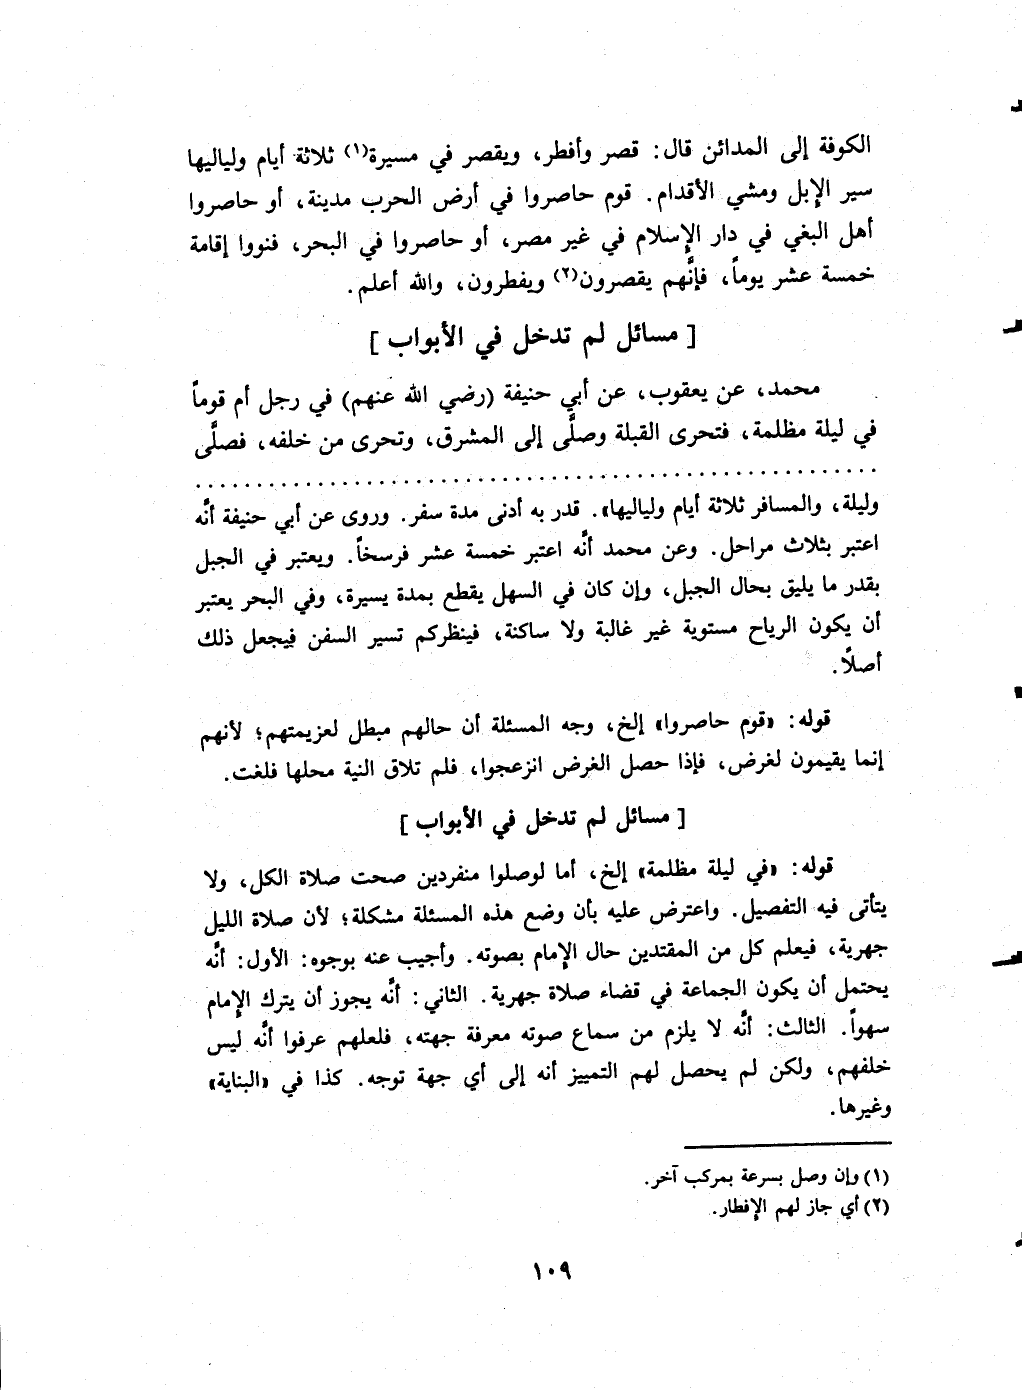 الكوفة إلى المدائن قال: قصر وأفطر، ويقصر في مسيرة(١) ثلاثة أيام ولياليها
سير الإبل ومشي الأقدام. قوم حاصروا في أرض الحرب مدينة، أو حاصروا
أهل البغي في دار الإسلام في غير مصر، أو حاصروا في البحر، فنووا إقامة
خمسة عشر يوماً، فإنَّهم يقصرون(٢) ويفطرون، والله أعلم.
[ مسائل لم تدخل في الأبواب ]
محمد، عن يعقوب، عن أبي حنيفة (رضي الله عنهم) في رجل أم قوماً
في ليلة مظلمة، فتحرى القبلة وصلَّى إلى المشرق، وتحرى من خلفه، فصلَّى
وليلة، والمسافر ثلاثة أيام ولياليها». قدر به أدنى مدة سفر. وروى عن أبي حنيفة أنَّه
اعتبر بثلاث مراحل. وعن محمد أنَّه اعتبر خمسة عشر فرسخاً. ويعتبر في الجبل
بقدر ما يليق بحال الجبل، وإن كان في السهل يقطع بمدة يسيرة، وفي البحر يعتبر
أن يكون الرياح مستوية غير غالبة ولا ساكنة، فينظركم تسير السفن فيجعل ذلك
أصلاً.
قوله: «قوم حاصروا» إلخ، وجه المسئلة أن حالهم مبطل لعزيمتهم؛ لأنهم
إنما يقيمون لغرض، فإذا حصل الغرض انزعجوا، فلم تلاق النية محلها فلغت.
[ مسائل لم تدخل في الأبواب ]
قوله: «في ليلة مظلمة» إلخ، أما لوصلوا منفردين صحت صلاة الكل، ولا
يتأتى فيه التفصيل. واعترض عليه بأن وضع هذه المسئلة مشكلة؛ لأن صلاة الليل
جهرية، فيعلم كل من المقتدين حال الإمام بصوته. وأجيب عنه بوجوه: الأول: أنَّه
يحتمل أن يكون الجماعة في قضاء صلاة جهرية. الثاني: أنَّه يجوز أن يترك الإمام
سهواً. الثالث: أنَّه لا يلزم من سماع صوته معرفة جهته، فلعلهم عرفوا أنَّه ليس
خلفهم، ولكن لم يحصل لهم التمييز أنه إلى أي جهة توجه. كذا في «البناية»
وغيرها.
(١) وإن وصل بسرعة بمركب آخر.
(٢) أي جاز لهم الإفطار.
١٠٩